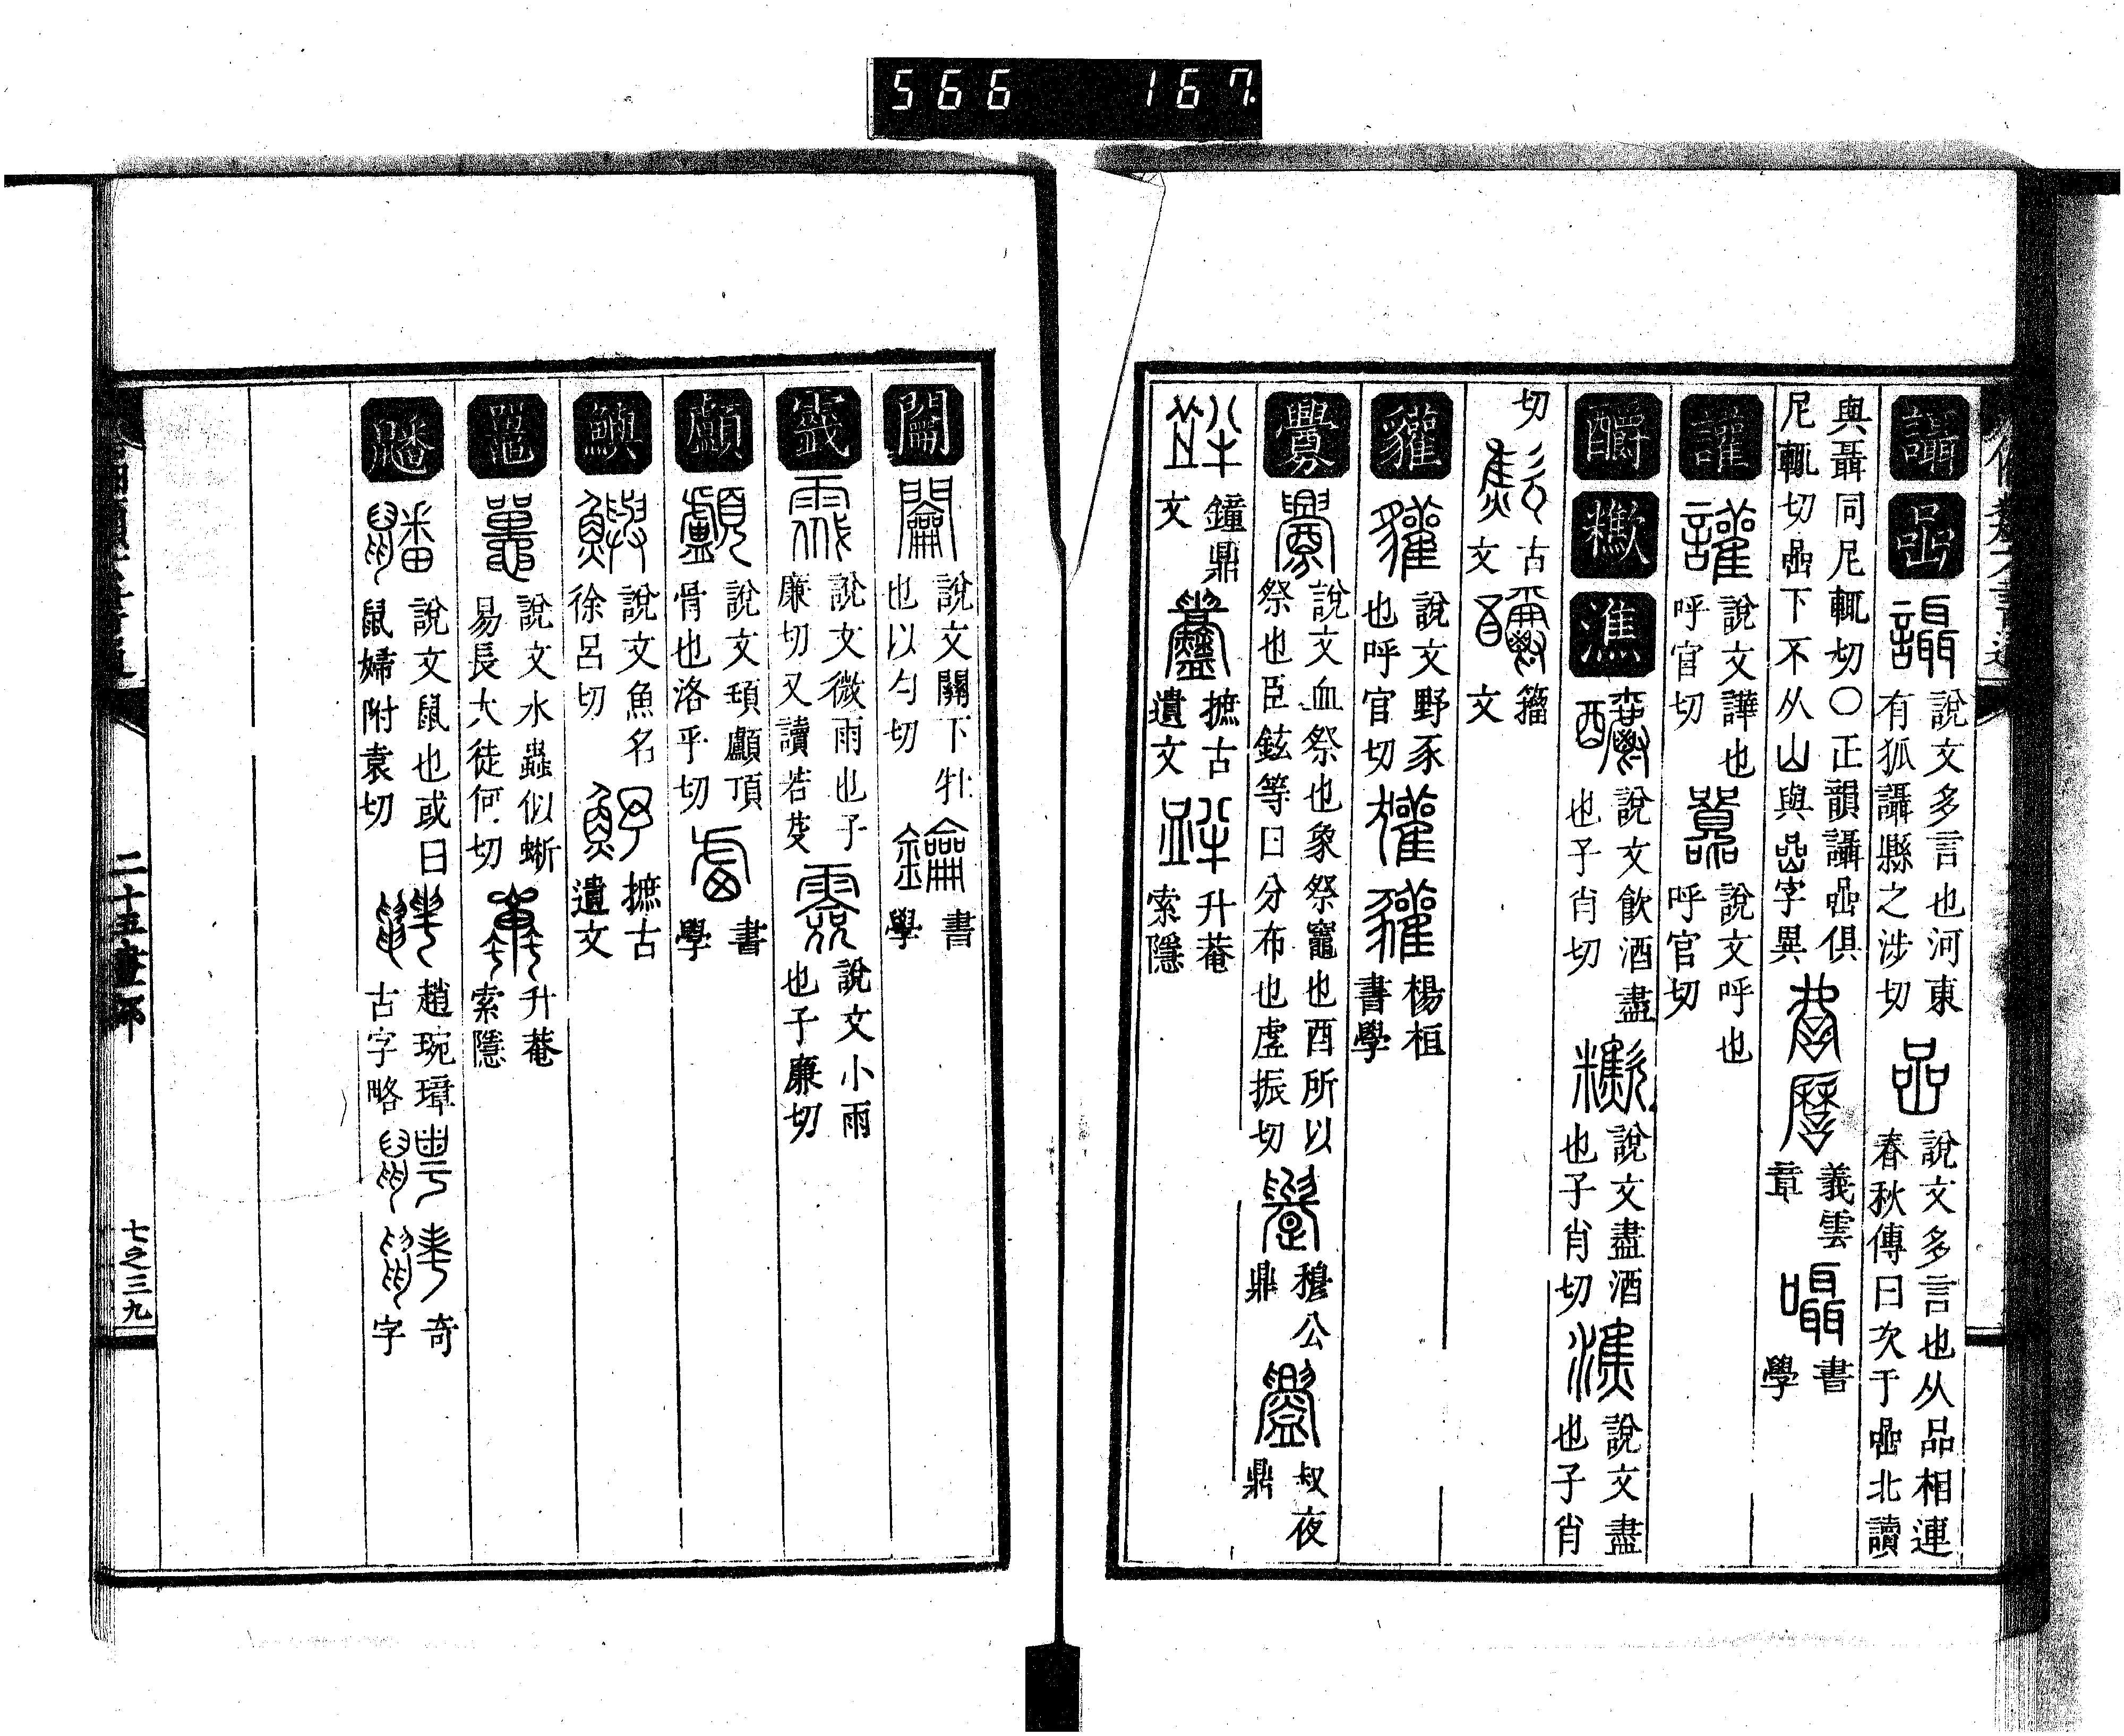 566 167.
讘 嵒 說文多言也河東
有狐讘縣之涉切
說文多言也从品相連
春秋傳曰次于嵒北讀
與聶同尼輒切○正韻讘嵒俱
尼輒切嵒下不从山與嵒字異
義雲
章
書
學
讙 說文譁也
呼官切
說文呼也
呼官切
釂 𣤶 潐 說文飲酒盡
也子肖切
說文盡酒
也子肖切
說文盡
也子肖
切
古
文
籀
文
貛 說文野豕
也呼官切
楊桓
書學
釁 說文血祭也象祭竈也酉所以
祭也臣鉉等曰分布也虛振切
穆公
鼎
叔夜
鼎
鐘鼎
文
摭古
遺文
升菴
索隱
闟 說文關下牡
也以勺切
書
學
霺 說文微雨也子
廉切又讀若芟
說文小雨
也子廉切
顱 說文䪼顱頂
骨也洛乎切
書
學
鱮 說文魚名
徐呂切
摭古
遺文
鼉 說文水蟲似蜥
易長大徒何切
升菴
索隱
鼶 說文鼠也或曰
鼠婦附袁切
趙琬璋
古字略
奇
字
二十五畫部
七之三九